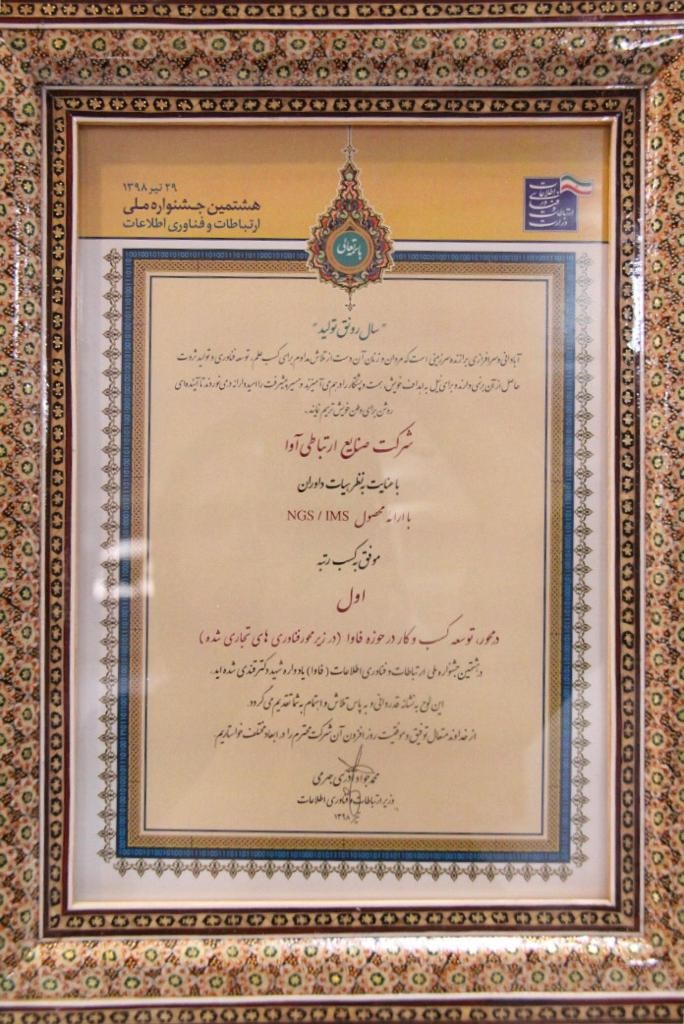 ۲۹ تیر ۱۳۹۸
هشتمین جشنواره ملی
ارتباطات و فناوری اطلاعات
وزارت ارتباطات و فناوری اطلاعات
باسمه تعالی
"سال رونق تولید"
آبادانی و سرافرازی برازنده سرزمینی است که مردان و زنان آن دست از تلاش مداوم برای کسب علم، توسعه فناوری و تولید ثروت
حاصل از آن برنمی دارند و برای نیل به اهداف خویش، همت و پشتکار را در هم می آمیزند و مسیر پیشرفت را امیدوارانه در می نوردند تا آینده ای
روشن برای وطن خویش ترسیم نمایند.
شرکت صنایع ارتباطی آوا
با عنایت به نظر هیات داوران
با ارائه محصول NGS / IMS
موفق به کسب رتبه
اول
در محور، توسعه کسب و کار در حوزه فاوا (در زیر محور فناوری های تجاری شده)
در هشتمین جشنواره ملی ارتباطات و فناوری اطلاعات (فاوا) یادواره شهید دکتر قندی شده اید.
این لوح به نشانه قدردانی و به پاس تلاش و اهتمام به شما تقدیم می گردد.
از خداوند متعال توفیق و موفقیت روز افزون آن شرکت محترم را در ابعاد مختلف خواستاریم.
محمد جواد آذری جهرمی
وزیر ارتباطات و فناوری اطلاعات
تیر ۱۳۹۸